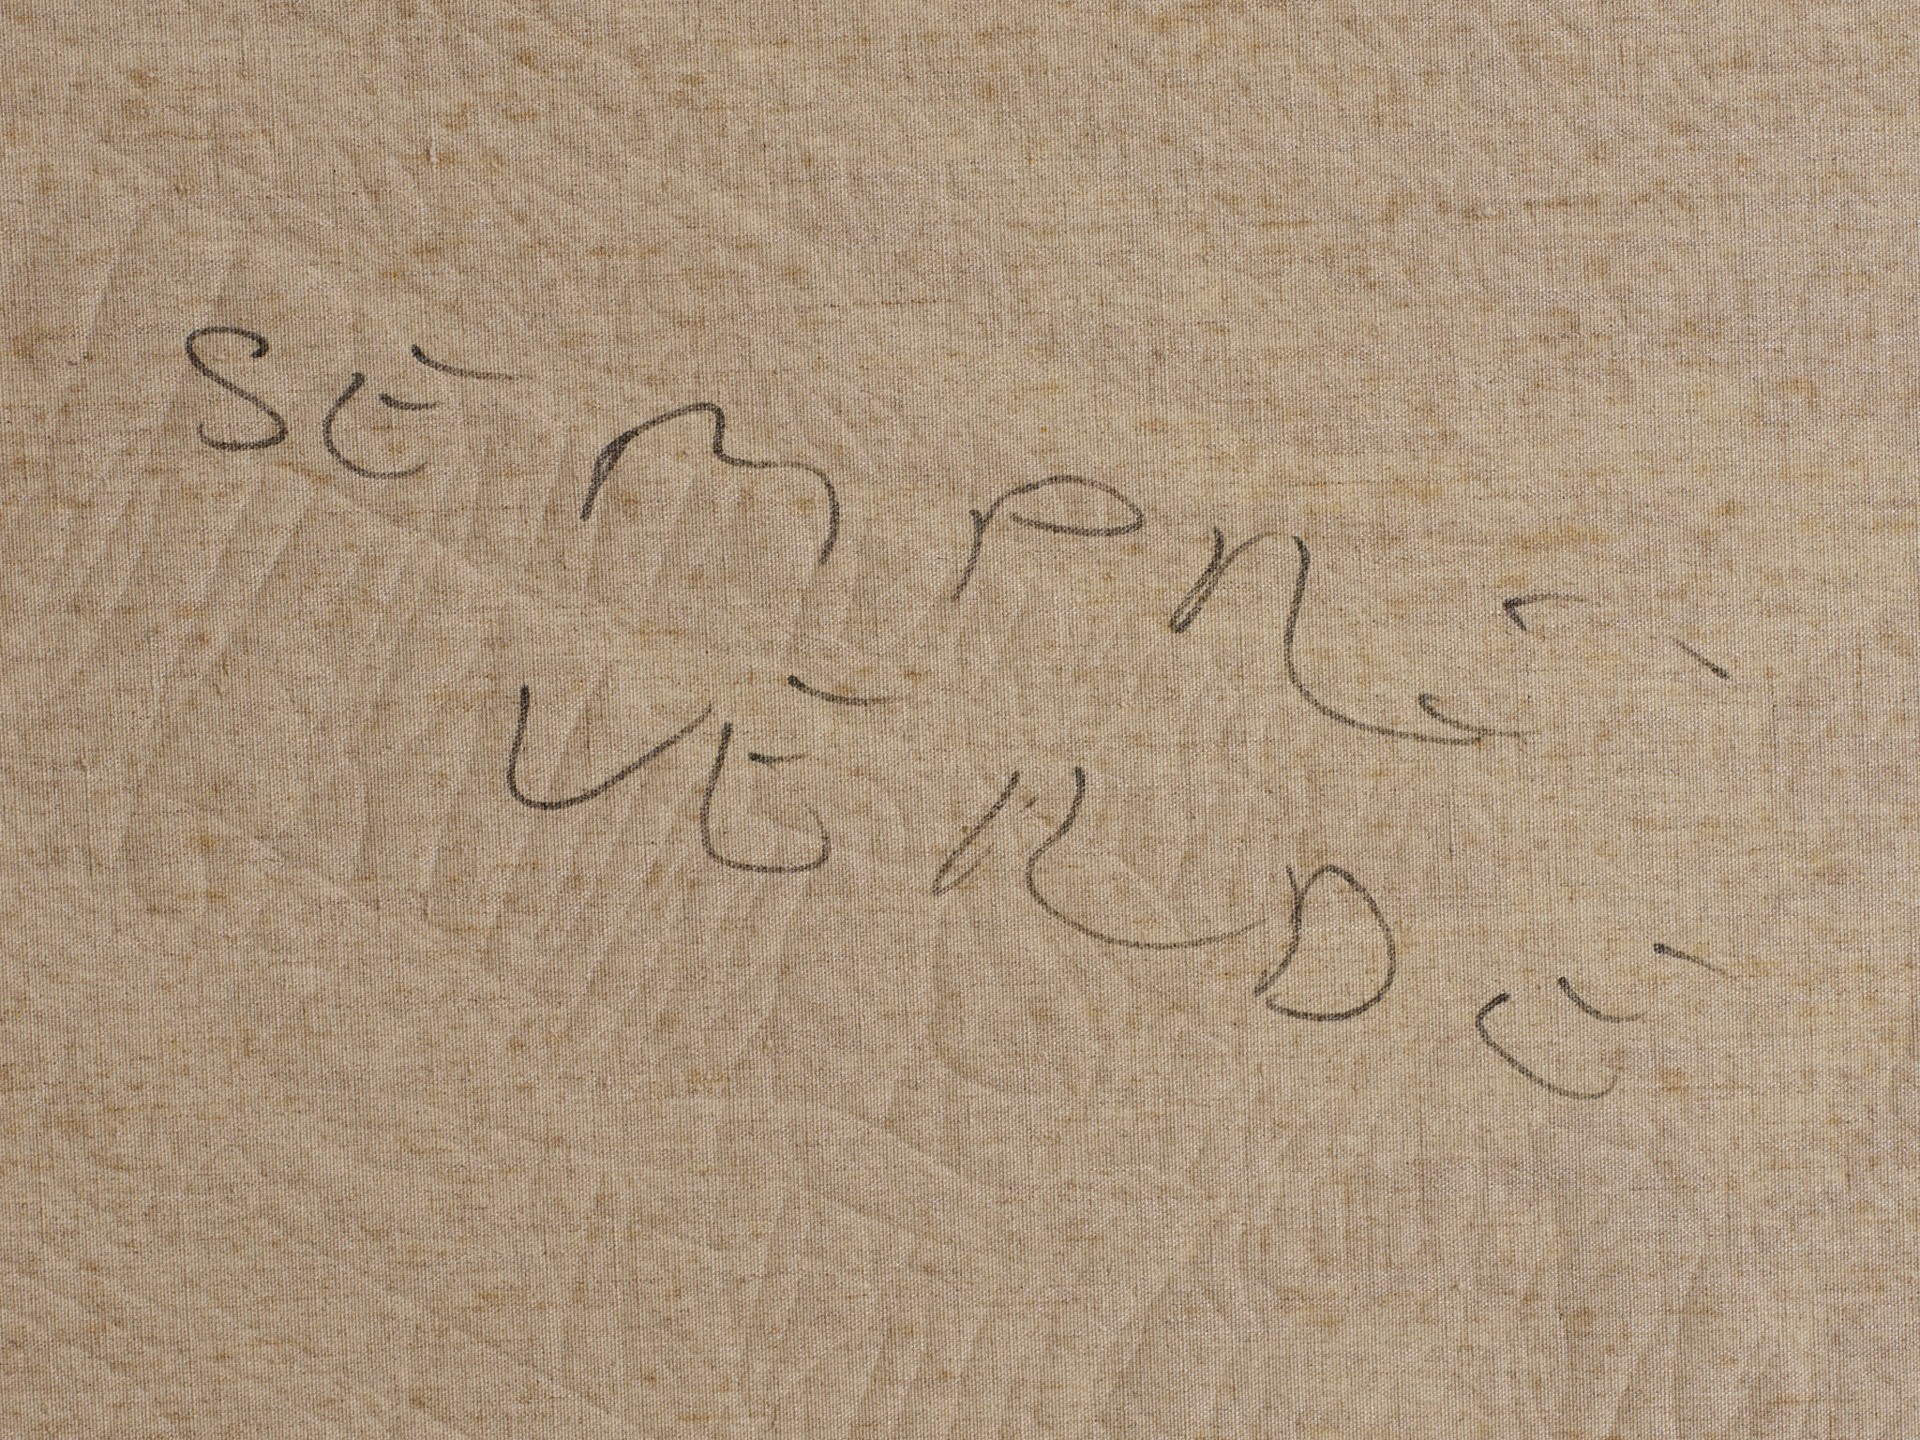 SEMPRE
VERDE